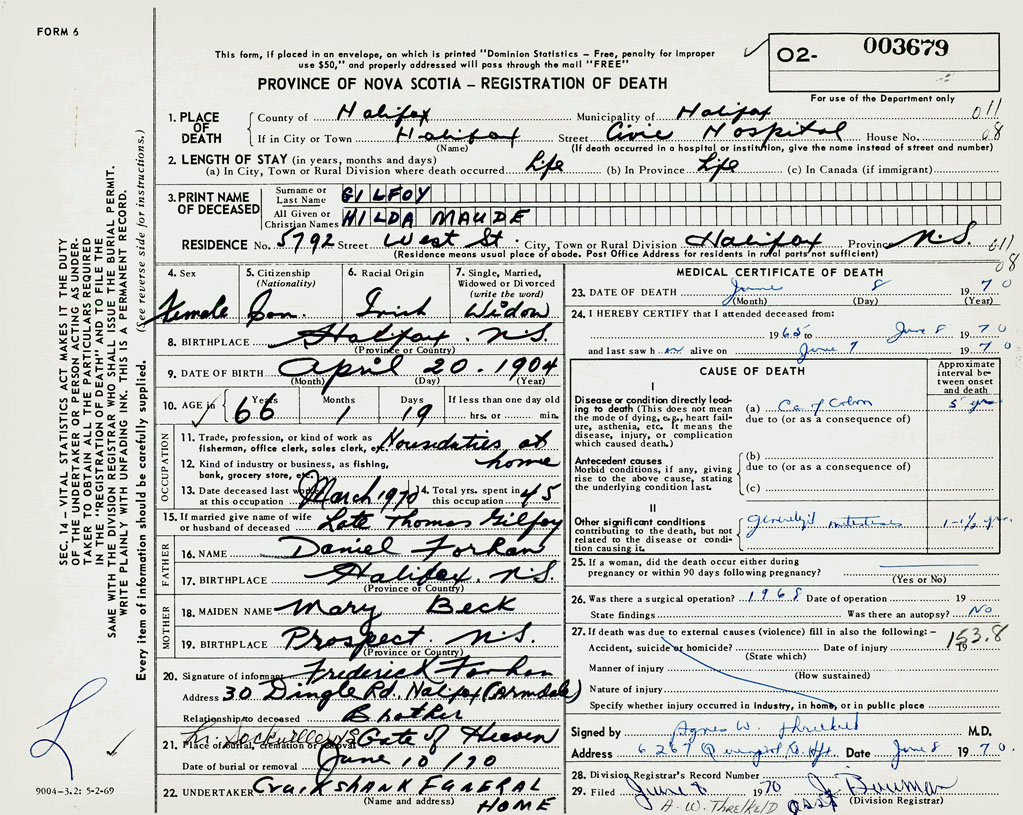 FORM 6
This form, if placed in an envelope, on which is printed "Dominion Statistics – Free, penalty for improper
use $50," and properly addressed will pass through the mail "FREE"
02- 003679
For use of the Department only
PROVINCE OF NOVA SCOTIA – REGISTRATION OF DEATH
SEC. 14 – VITAL STATISTICS ACT MAKES IT THE DUTY
OF THE UNDERTAKER OR PERSON ACTING AS UNDER-
TAKER TO OBTAIN ALL THE PARTICULARS REQUIRED
IN THE "REGISTRATION OF DEATH" AND TO FILE THE
SAME WITH THE DIVISION REGISTRAR WHO SHALL ISSUE THE BURIAL PERMIT.
WRITE PLAINLY WITH UNFADING INK. THIS IS A PERMANENT RECORD.
Every item of information should be carefully supplied. (See reverse side for instructions.)
1. PLACE OF DEATH
County of Halifax Municipality of Halifax 011
If in City or Town Halifax Street Civic Hospital House No. 08
(Name) (If death occurred in a hospital or institution, give the name instead of street and number)
2. LENGTH OF STAY (in years, months and days)
(a) In City, Town or Rural Division where death occurred Life (b) In Province Life (c) In Canada (if immigrant)
3. PRINT NAME OF DECEASED
Surname or Last Name GILFOY
All Given or Christian Names HILDA MAUDE
RESIDENCE No. 5792 Street West St. City, Town or Rural Division Halifax Province N.S. 011
(Residence means usual place of abode. Post Office Address for residents in rural parts not sufficient) 08
4. Sex Female
5. Citizenship (Nationality) Can.
6. Racial Origin Irish
7. Single, Married, Widowed or Divorced (write the word) Widow
8. BIRTHPLACE Halifax N.S.
(Province or Country)
9. DATE OF BIRTH April 20. 1904
(Month) (Day) (Year)
10. AGE in 66 Years 1 Months 19 Days If less than one day old
hrs. or min.
OCCUPATION
11. Trade, profession, or kind of work as
fisherman, office clerk, sales clerk, etc. Houseduties at
12. Kind of industry or business, as fishing,
bank, grocery store, etc. home
13. Date deceased last worked
at this occupation March 1970 14. Total yrs. spent in
this occupation 45
15. If married give name of wife
or husband of deceased Late Thomas Gilfoy
FATHER
16. NAME Daniel Forhan
17. BIRTHPLACE Halifax. N.S.
(Province or Country)
MOTHER
18. MAIDEN NAME Mary Beck
19. BIRTHPLACE Prospect N.S.
(Province or Country)
20. Signature of informant Frederick Forhan
Address 30 Dingle Rd. Halifax (Armdale)
Relationship to deceased Brother
Lr. Sackville N.S.
21. Place of burial, cremation or removal Gate of Heaven
Date of burial or removal June 10/70
22. UNDERTAKER Cruikshank Funeral
(Name and address) Home
9004-3.2: 5-2-69
MEDICAL CERTIFICATE OF DEATH
23. DATE OF DEATH June 8 1970
(Month) (Day) (Year)
24. I HEREBY CERTIFY that I attended deceased from:
1965 to June 8 1970
and last saw her alive on June 7 1970
CAUSE OF DEATH
Approximate interval between onset and death
I
Disease or condition directly lead-
ing to death (This does not mean
the mode of dying, e.g., heart fail-
ure, asthenia, etc. It means the
disease, injury, or complication
which caused death.)
(a) Ca of Colon 5 yrs
due to (or as a consequence of)
Antecedent causes
Morbid conditions, if any, giving
rise to the above cause, stating
the underlying condition last.
(b)
due to (or as a consequence of)
(c)
II
Other significant conditions
contributing to the death, but not
related to the disease or condi-
tion causing it. 1-1½ yrs.
25. If a woman, did the death occur either during
pregnancy or within 90 days following pregnancy?
(Yes or No)
26. Was there a surgical operation? 1968 Date of operation 19
State findings Was there an autopsy? No
27. If death was due to external causes (violence) fill in also the following: – 153.8
Accident, suicide or homicide? Date of injury 19
(State which)
Manner of injury
(How sustained)
Nature of injury
Specify whether injury occurred in industry, in home, or in public place
Signed by Agnes W. Threlkeld M.D.
Address 6267 Date June 8 1970.
28. Division Registrar's Record Number
29. Filed June 8 1970 J. Bowman
A. W. Threlkeld asst (Division Registrar)